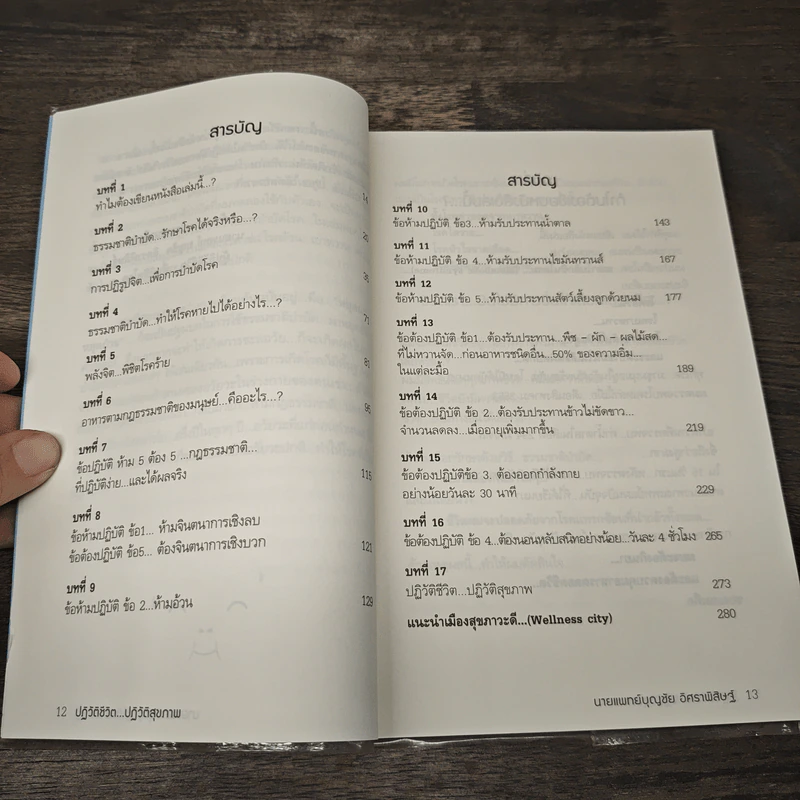 สารบัญ
บทที่ 1
ทำไมต้องเขียนหนังสือเล่มนี้...?
บทที่ 2
ธรรมชาติบำบัด...รักษาโรคได้จริงหรือ...?
บทที่ 3
การปฏิรูปจิต...เพื่อการบำบัดโรค
บทที่ 4
ธรรมชาติบำบัด...ทำให้โรคหายไปได้อย่างไร...? 71
บทที่ 5
พลังจิต...พิชิตโรคร้าย 81
บทที่ 6
อาหารตามกฎธรรมชาติของมนุษย์...คืออะไร...?
บทที่ 7
ข้อปฏิบัติ ห้าม 5 ต้อง 5 ...กฎธรรมชาติ...
ที่ปฏิบัติง่าย...และได้ผลจริง 115
บทที่ 8
ข้อห้ามปฏิบัติ ข้อ1... ห้ามจินตนาการเชิงลบ
ข้อต้องปฏิบัติ ข้อ5... ต้องจินตนาการเชิงบวก 121
บทที่ 9
ข้อห้ามปฏิบัติ ข้อ 2...ห้ามอ้วน 129
12 ปฏิวัติชีวิต...ปฏิวัติสุขภาพ
สารบัญ
บทที่ 10
ข้อห้ามปฏิบัติ ข้อ3...ห้ามรับประทานน้ำตาล 143
บทที่ 11
ข้อห้ามปฏิบัติ ข้อ 4...ห้ามรับประทานไขมันทรานส์ 167
บทที่ 12
ข้อห้ามปฏิบัติ ข้อ 5...ห้ามรับประทานสัตว์เลี้ยงลูกด้วยนม 177
บทที่ 13
ข้อต้องปฏิบัติ ข้อ1...ต้องรับประทาน...พืช - ผัก - ผลไม้สด...
ที่ไม่หวานจัด...ก่อนอาหารชนิดอื่น...50% ของความอิ่ม...
ในแต่ละมื้อ 189
บทที่ 14
ข้อต้องปฏิบัติ ข้อ 2...ต้องรับประทานข้าวไม่ขัดขาว...
จำนวนลดลง...เมื่ออายุเพิ่มมากขึ้น 219
บทที่ 15
ข้อต้องปฏิบัติข้อ 3. ต้องออกกำลังกาย
อย่างน้อยวันละ 30 นาที 229
บทที่ 16
ข้อต้องปฏิบัติ ข้อ 4...ต้องนอนหลับสนิทอย่างน้อย...วันละ 4 ชั่วโมง 265
บทที่ 17
ปฏิวัติชีวิต...ปฏิวัติสุขภาพ 273
แนะนำเมืองสุขภาวะดี...(Wellness city) 280
นายแพทย์บุญชัย อิศราพิสิษฐ์ 13